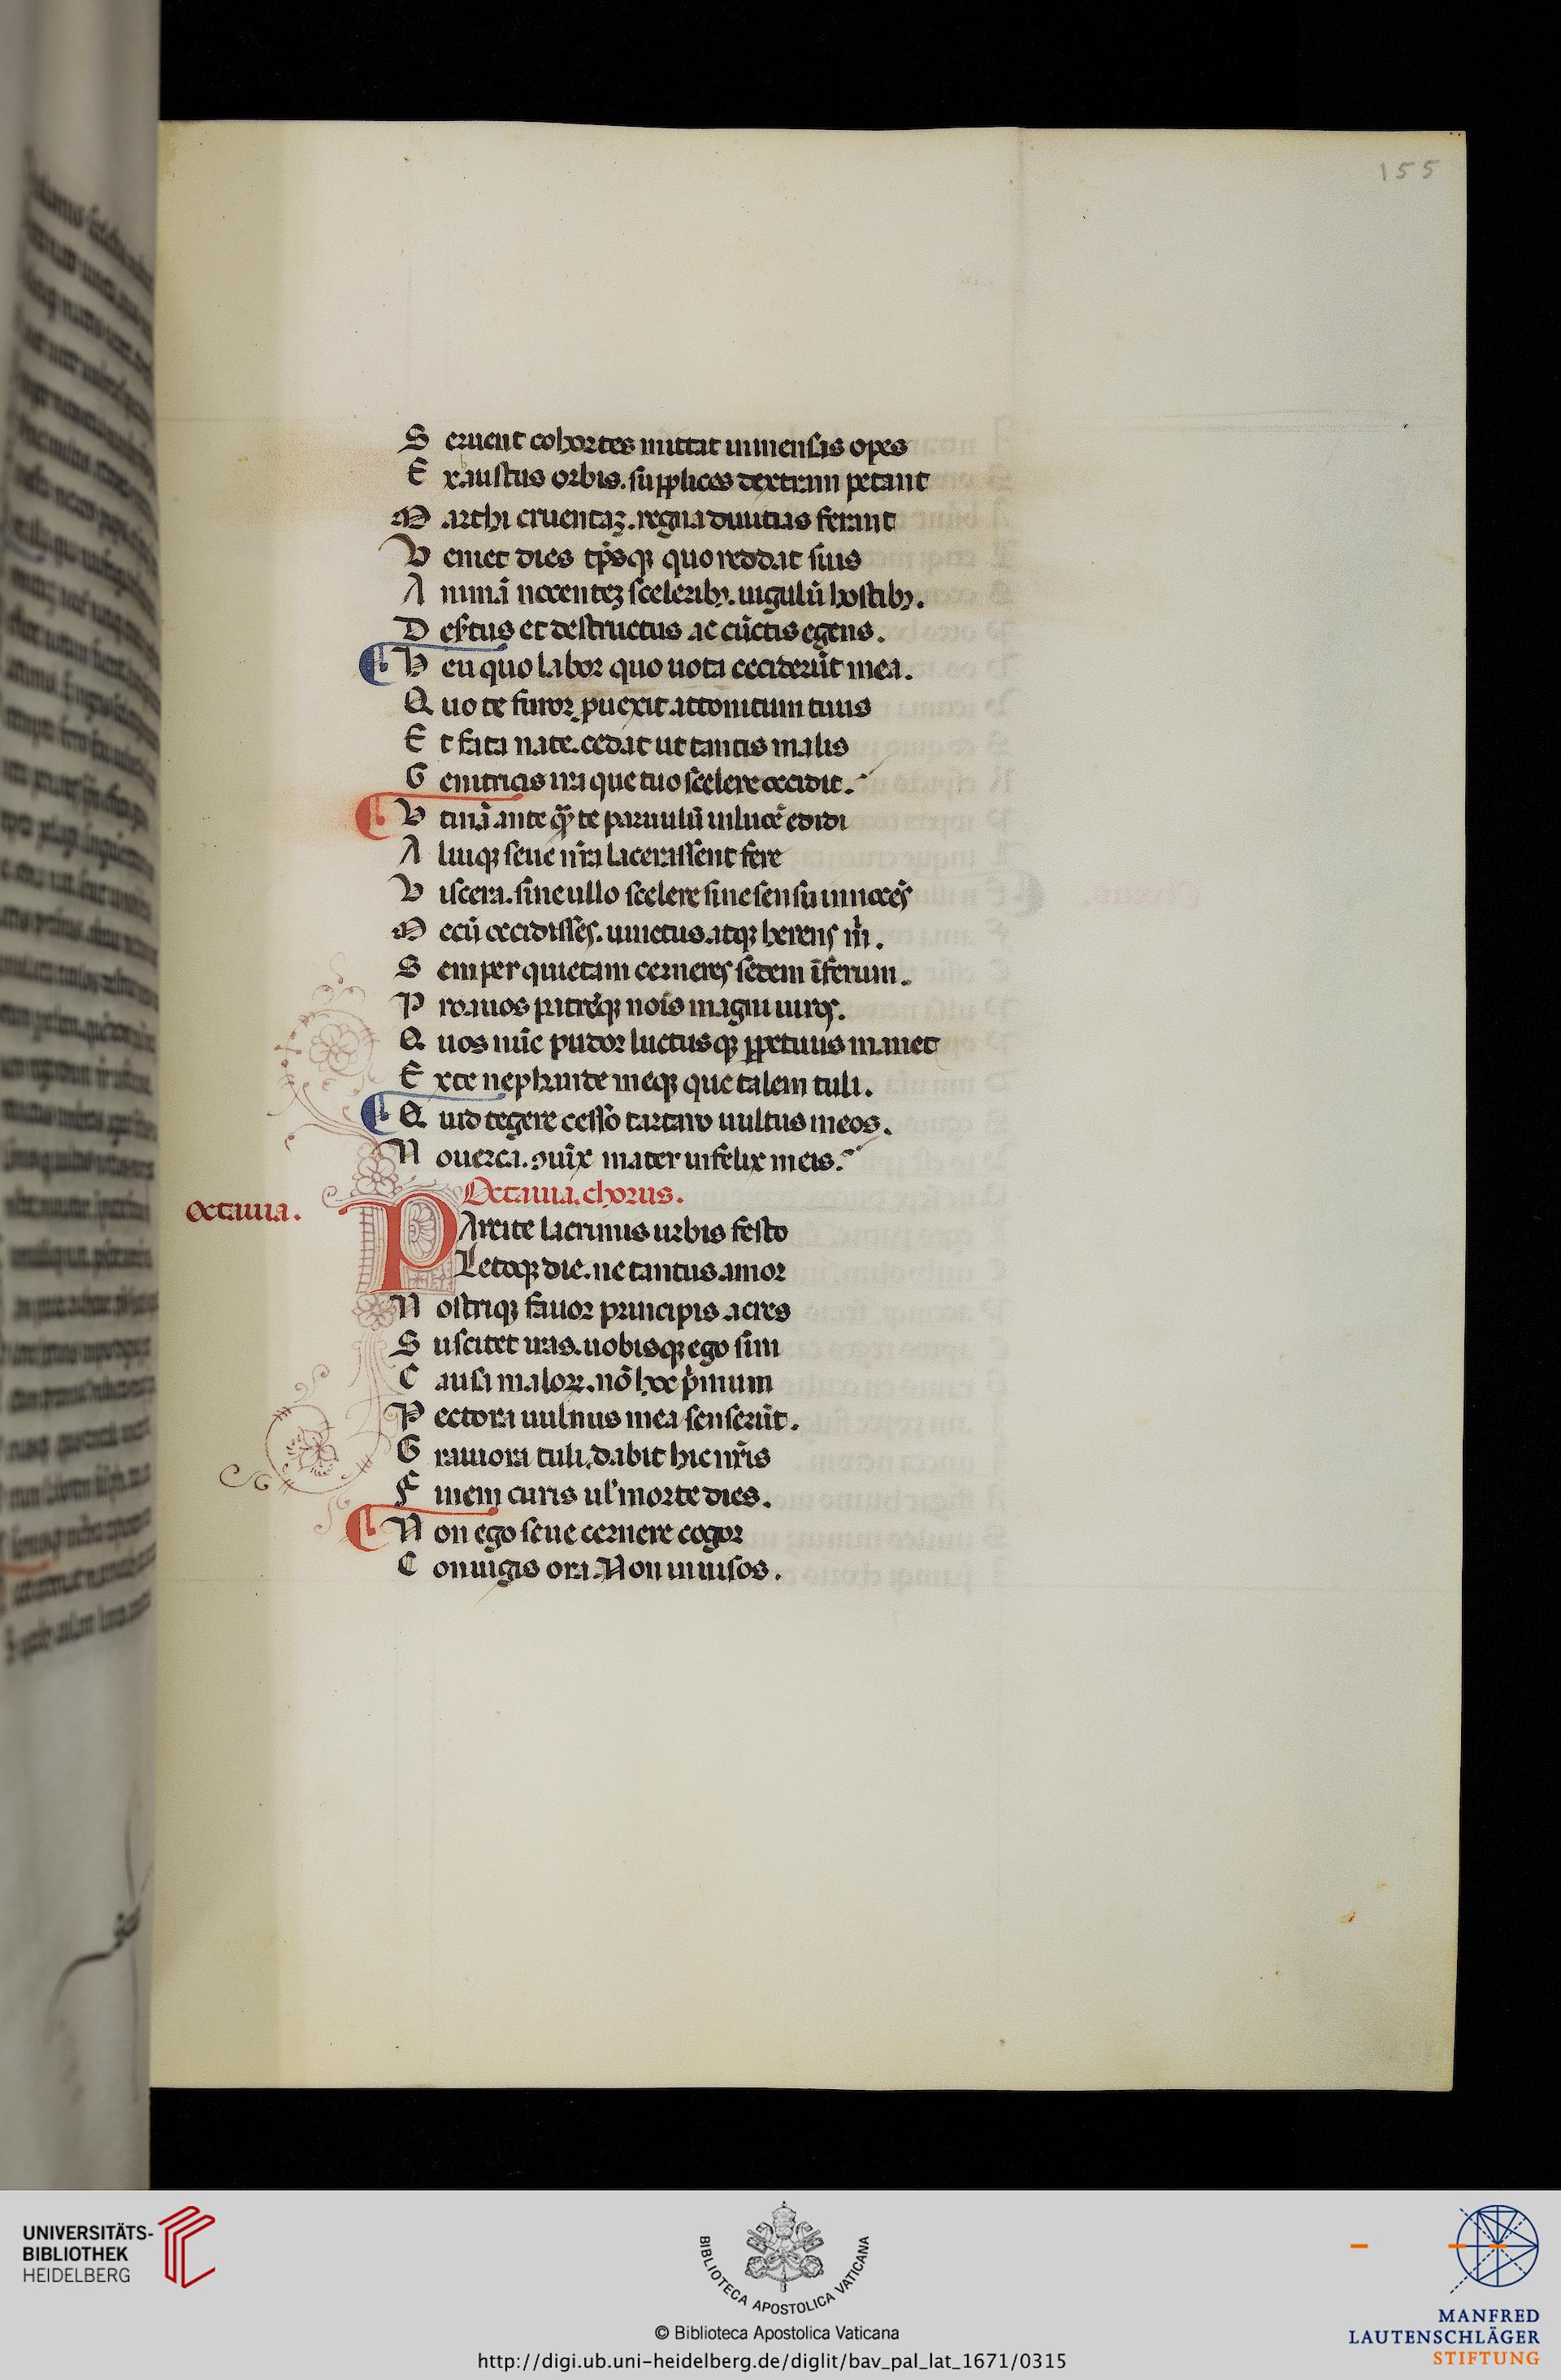 155
S eruent cohortes mittat inmensas opes
E xaustus orbis. supplices dextram petant
P arthi cruentaʒ. regna diuitias ferant
V eniet dies tp̄sqꝫ quo reddat suis
A nimā nocenteʒ sceleribꝫ. iugulū hostibꝫ.
D esertus et destructus ac cūctis egens.
H eu quo labor quo uota ceciderūt mea.
Q uo te furor ꝓuexit attonitum tuus
E t fata nate. cedat ut tantis malis
G enitricis ira que tuo scelere occidit.
V tinā ante qͣꝫ te paruulū in lucē edidi
A luiqꝫ seue nr̄a lacerassent fere
V iscera. sine ullo scelere sine sensu innocēs
M ecū occidisses. uinctus atqꝫ herens m̄.
S emper quietam cerneres sedem īferum.
P roauos patrēqꝫ nois magni uiros.
Q uos nūc pudor luctusqꝫ ꝑpetuus manet
E x te nephande meqꝫ que talem tuli.
Q uid tegere cesso tartaro uultus meos.
N ouerca. ꝯiūx mater infelix meis.
Octauia. chorus.
Octauia.
PArcite lacrimis urbis festo
Letoqꝫ die. ne tantus amor
N ostriqꝫ fauor principis acres
S uscitet iras. uobisqꝫ ego sim
C ausa maloꝝ. nō hoc p̄mum
P ectora uulnus mea senserūt.
G rauiora tuli. dabit hic nr̄is
F inem curis ul' morte dies.
N on ego seue cernere cogor
C oniugis ora. Non inuisos.
UNIVERSITÄTS-
BIBLIOTHEK
HEIDELBERG
BIBLIOTECA APOSTOLICA VATICANA
© Biblioteca Apostolica Vaticana
http://digi.ub.uni-heidelberg.de/diglit/bav_pal_lat_1671/0315
MANFRED
LAUTENSCHLÄGER
STIFTUNG